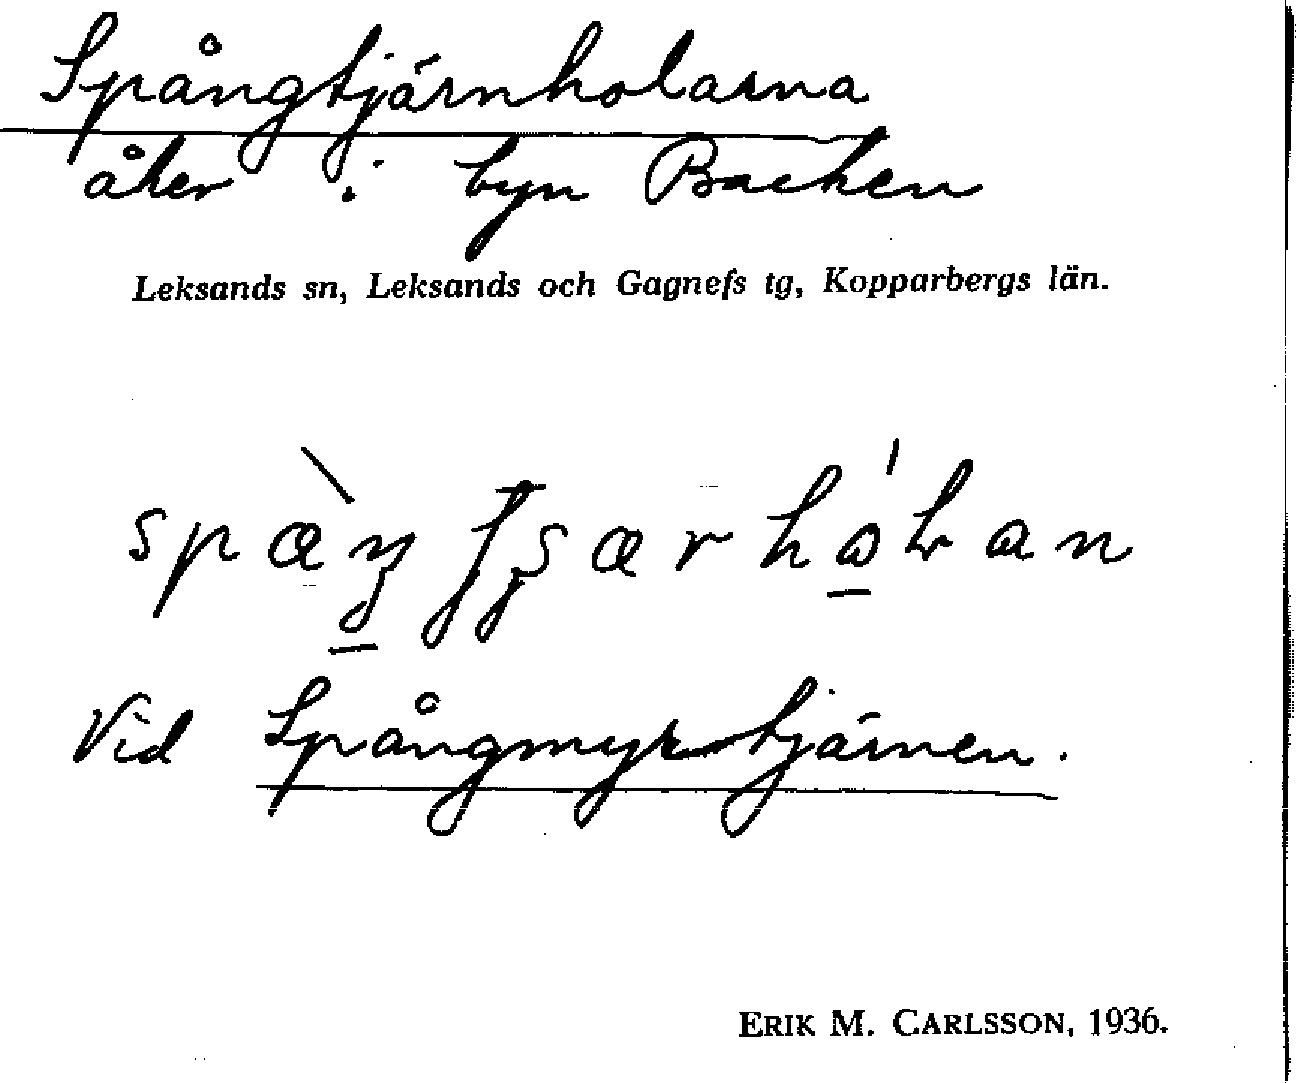 Spångtjärnholarna
åker i byn Backen
Leksands sn, Leksands och Gagnefs tg, Kopparbergs län.
Vid Spångmyrstjärnen.
ERIK M. CARLSSON, 1936.